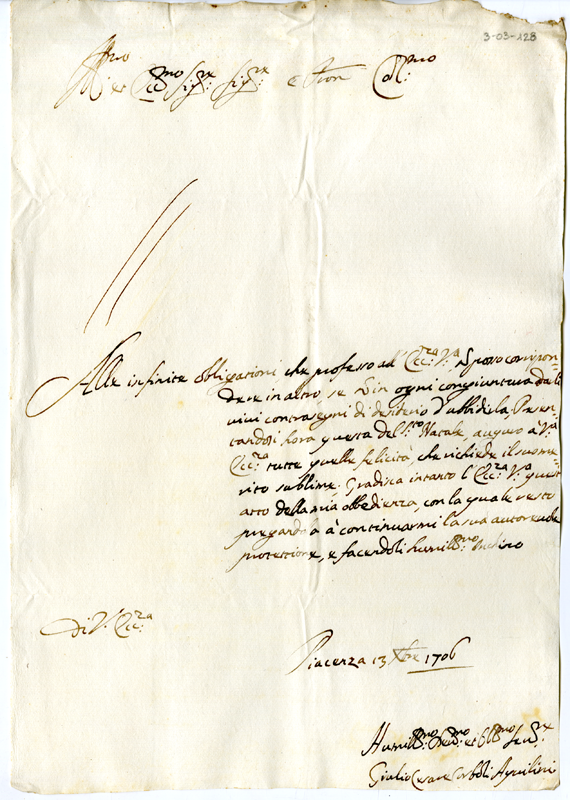 3-03-128
Ill:mo et Ecc:mo Sig:r Sig:r e Pron Col:mo
Alle infinite obligationi che professo all' Ecc:za V:a, posso corrispon-
dere in altro se in ogni congiuntura darli
vivi contrasegni di desiderio d'ubbidirla. Presen-
tandosi hora questa del S:to Natale, auguro à V:a
Ecc:za tutte quelle felicità, che richiede il suo me-
rito sublime. Gradisca intanto l'Ecc:za V:a quest'
atto della mia obbedienza, con la quale resto
pregandola à continuarmi la sua autorevole
protettione, e facendoli humiliss:mo inchino
Di V: Ecc:za
Piacenza 13 Xbre 1706
Humiliss:mo Dev:mo et Obl:mo Ser:re
Giulio Cesare Aquilini